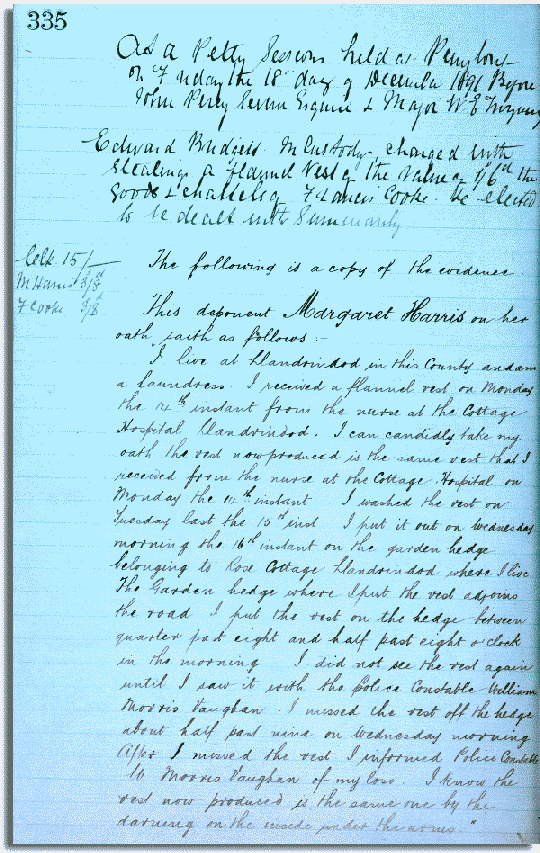 335
At a Petty Sessions held at Penybont
on Friday the 18 day of December 1891 Before
John Percy Severn Esquire & Major W E
Edward Bridgess in Custody charged with
stealing a flannel Vest of the value of 1/6d the
Goods & chattels of Frances Cooke. he elected
to be dealt with Summarily
Clk 15/-
The following is a copy of the evidence
M Harris 3/8d
F Cooke 3/8
This deponent Margaret Harris on her
oath saith as follows:-
I live at Llandrindod in this County and am
a laundress. I received a flannel vest on Monday
the 14th instant from the nurse at the Cottage
Hospital Llandrindod. I can candidly take my
oath the vest now produced is the same vest that I
received from the nurse at the Cottage Hospital on
Monday the 14th instant I washed the vest on
Tuesday last the 15th inst I put it out on Wednesday
morning the 16th instant on the garden hedge
belonging to Rose Cottage Llandrindod where I live
The Garden hedge where I put the vest adjoins
the road I put the vest on the hedge between
quarter past eight and half past eight o clock
in the morning I did not see the vest again
until I saw it with the Police Constable William
Morris Vaughan. I missed the vest off the hedge
about half past nine on Wednesday morning
After I missed the vest I informed Police Constable
W Morris Vaughan of my loss. I know the
vest now produced is the same one by the
darning on the inside under the arms."